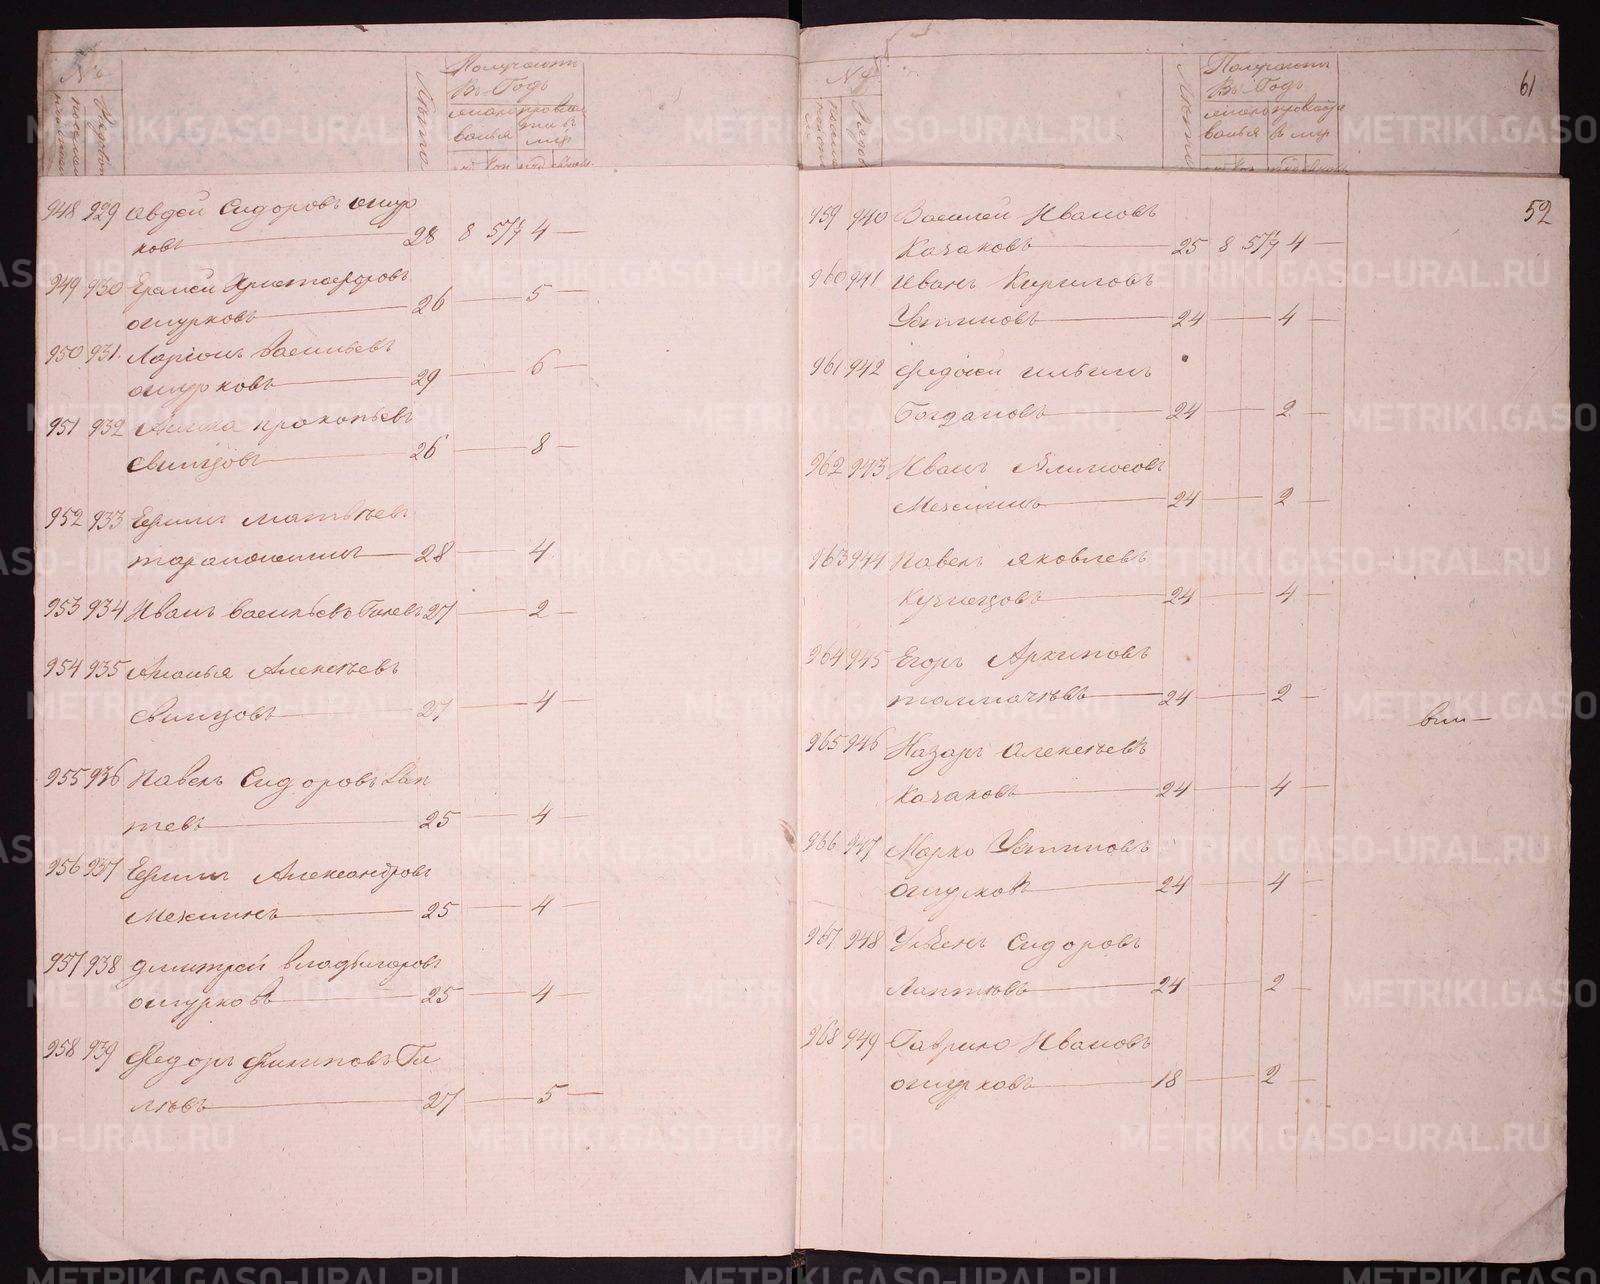 №
Получаютъ
въ Годъ
Лѣта
948 929 Авдей Сидоровъ Ошур
ковъ 28 8 5 1/7 4 —
949 930 Ерамей Христофоровъ
Ошурковъ 26 — 5 —
950 931. Ларіонъ Васильевъ
Ошурковъ 29 — 6 —
951 932 Аника Прокопьевъ
Свинцовъ 26 — 8 —
952 933 Ефимъ Матвѣевъ
28 — 4
953 934 Иванъ Васильевъ Гилевъ 27 — 2 —
954 935 Ананья Алексѣевъ
Свинцовъ 27 — 4 —
955 936 Павелъ Сидоровъ Лап
тевъ 25 — 4 —
956 937 Ефимъ Александровъ
Мехнинъ 25 — 4 —
957 938 Дмитрей Владимеровъ
Ошурковъ 25 — 4 —
958 939 Федоръ Филиповъ Ги
лѣвъ 27 — 5 —
№
Получаютъ
въ Годъ
Лѣта
61
52
959 940 Василей Ивановъ
Качаковъ 25 8 5 1/7 4 —
960 941 Иванъ Кириловъ
Устиновъ 24 — 4 —
961 942 Федосей Ильинъ
Богдановъ 24 — 2 —
962 943 Иванъ
Мехнинъ 24 — 2 —
963 944 Павелъ Яковлевъ
Кузнецовъ 24 — 4 —
964 945 Егоръ Архиповъ
Толмачѣвъ 24 — 2 —
965 946 Назаръ Алексѣевъ
Качаковъ 24 — 4 —
966 947 Марко Устиновъ
Ошурковъ 24 — 4 —
967 948 Сидоровъ
Лаптѣвъ 24 — 2 —
968 949 Гаврило Ивановъ
Ошурковъ 18 — 2 —
METRIKI.GASO-URAL.RU